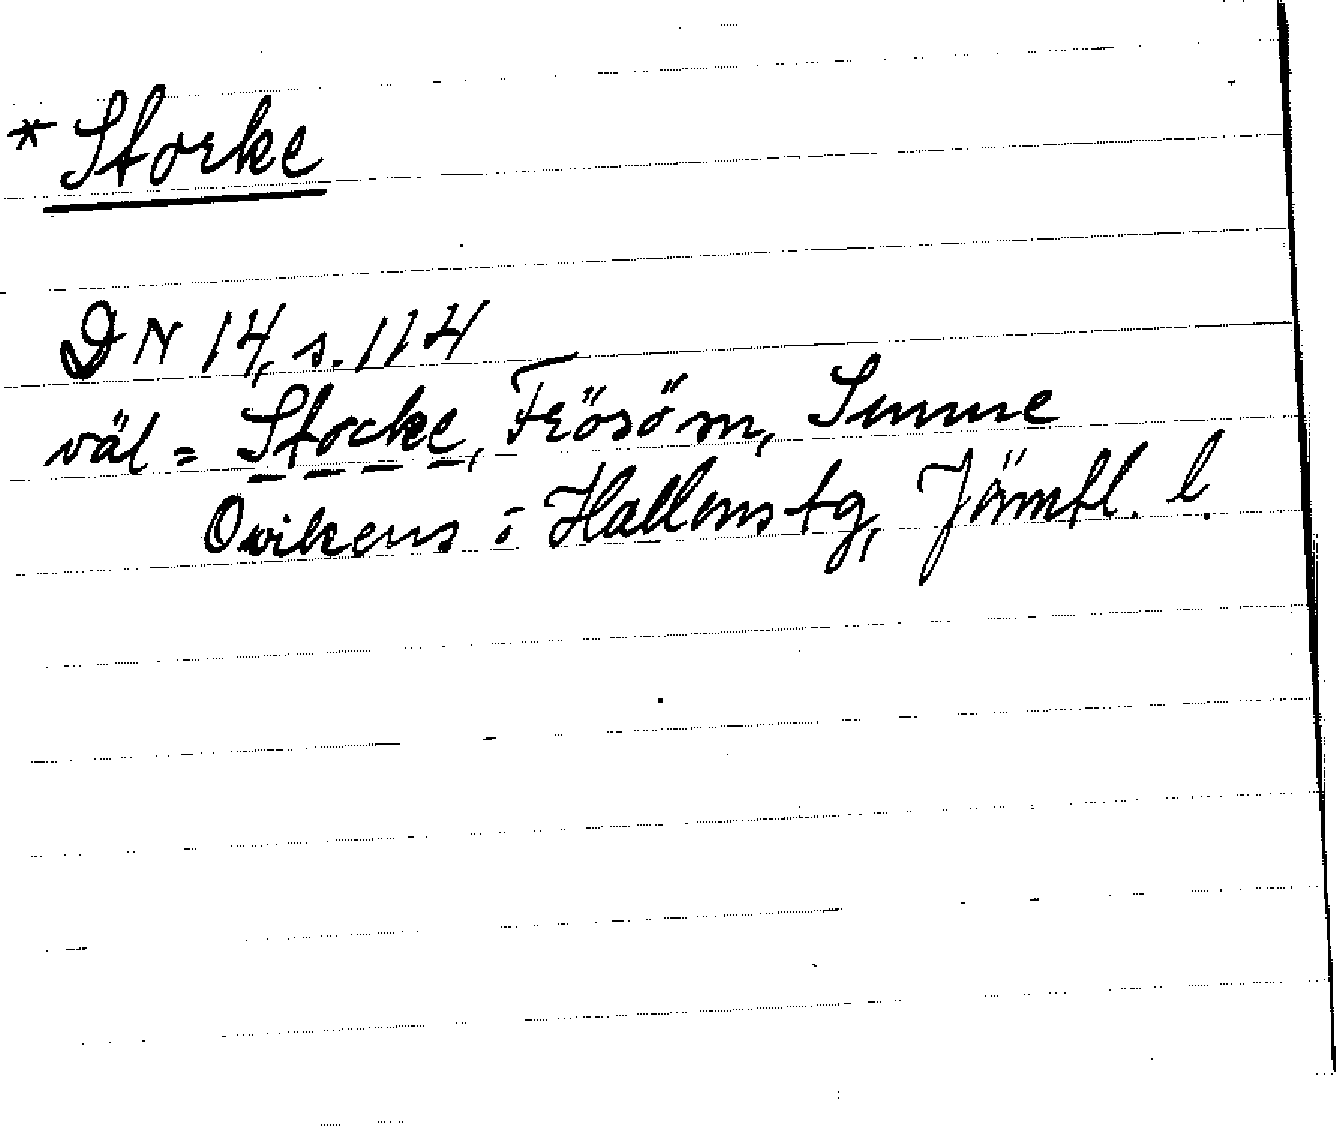 *Storke
DN 14, s. 114
väl = Stocke, Frösöm, Sunne
Ovikens o Hallens tg, Jämtl. l.